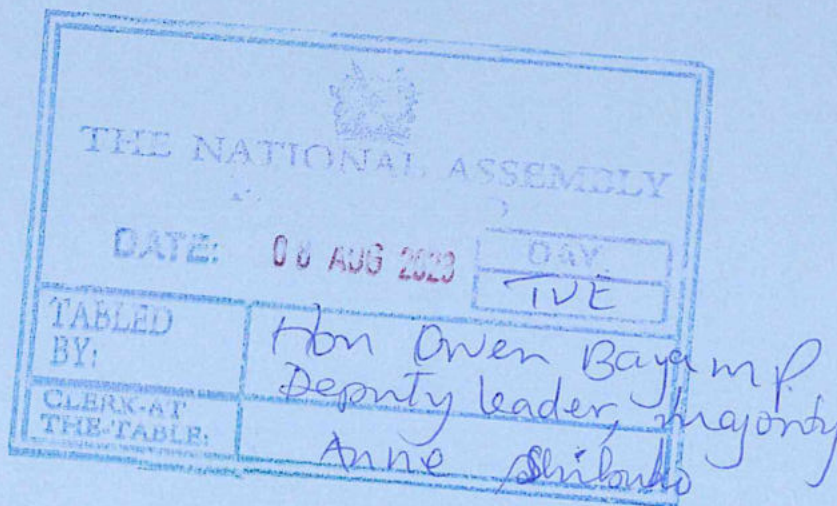 THE NATIONAL ASSEMBLY
DATE: 08 AUG 2023 DAY.
TUE
TABLED BY: Hon Owen Baya MP.
Deputy leader, majority
CLERK-AT THE-TABLE: Anne